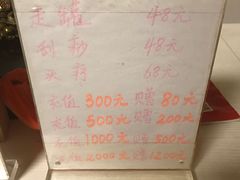 走罐 48元
刮痧 48元
火疗 68元
充值 300元 赠 80元
充值 500元 赠 200元
充值 1000元 赠 500元
充值 2000元 赠 1200元